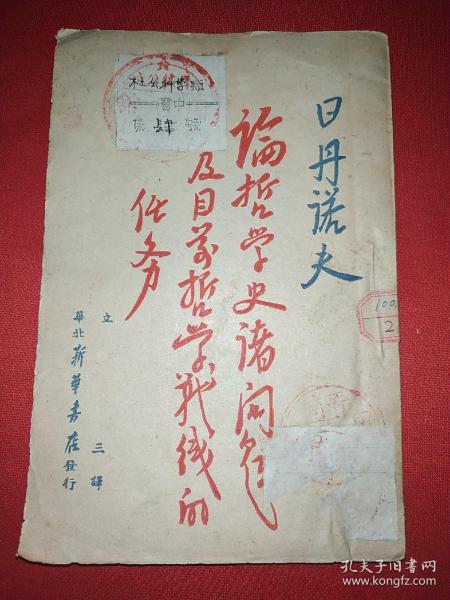 日丹诺夫
論哲学史諸問題
及目前哲学战线的
任务
立三譯
華北新華書店發行
社会科学類
中
第肆號
100
2
孔夫子旧书网
www.kongfz.com